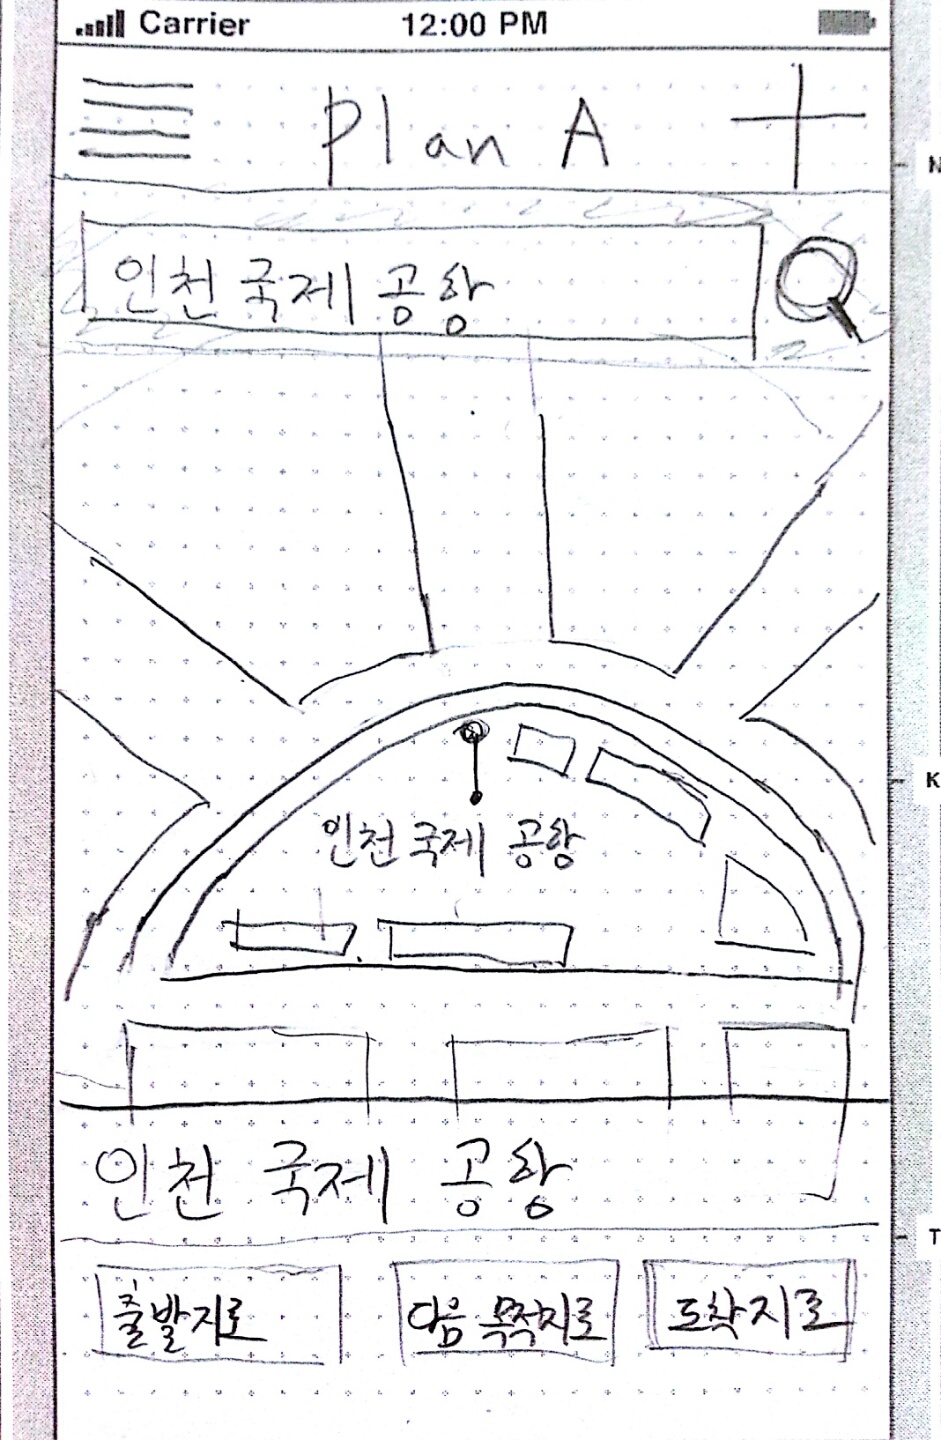 Carrier 12:00 PM
Plan A
인천 국제 공항
인천 국제 공항
인천 국제 공항
출발지로 다음 목적지로 도착지로
N
K
T